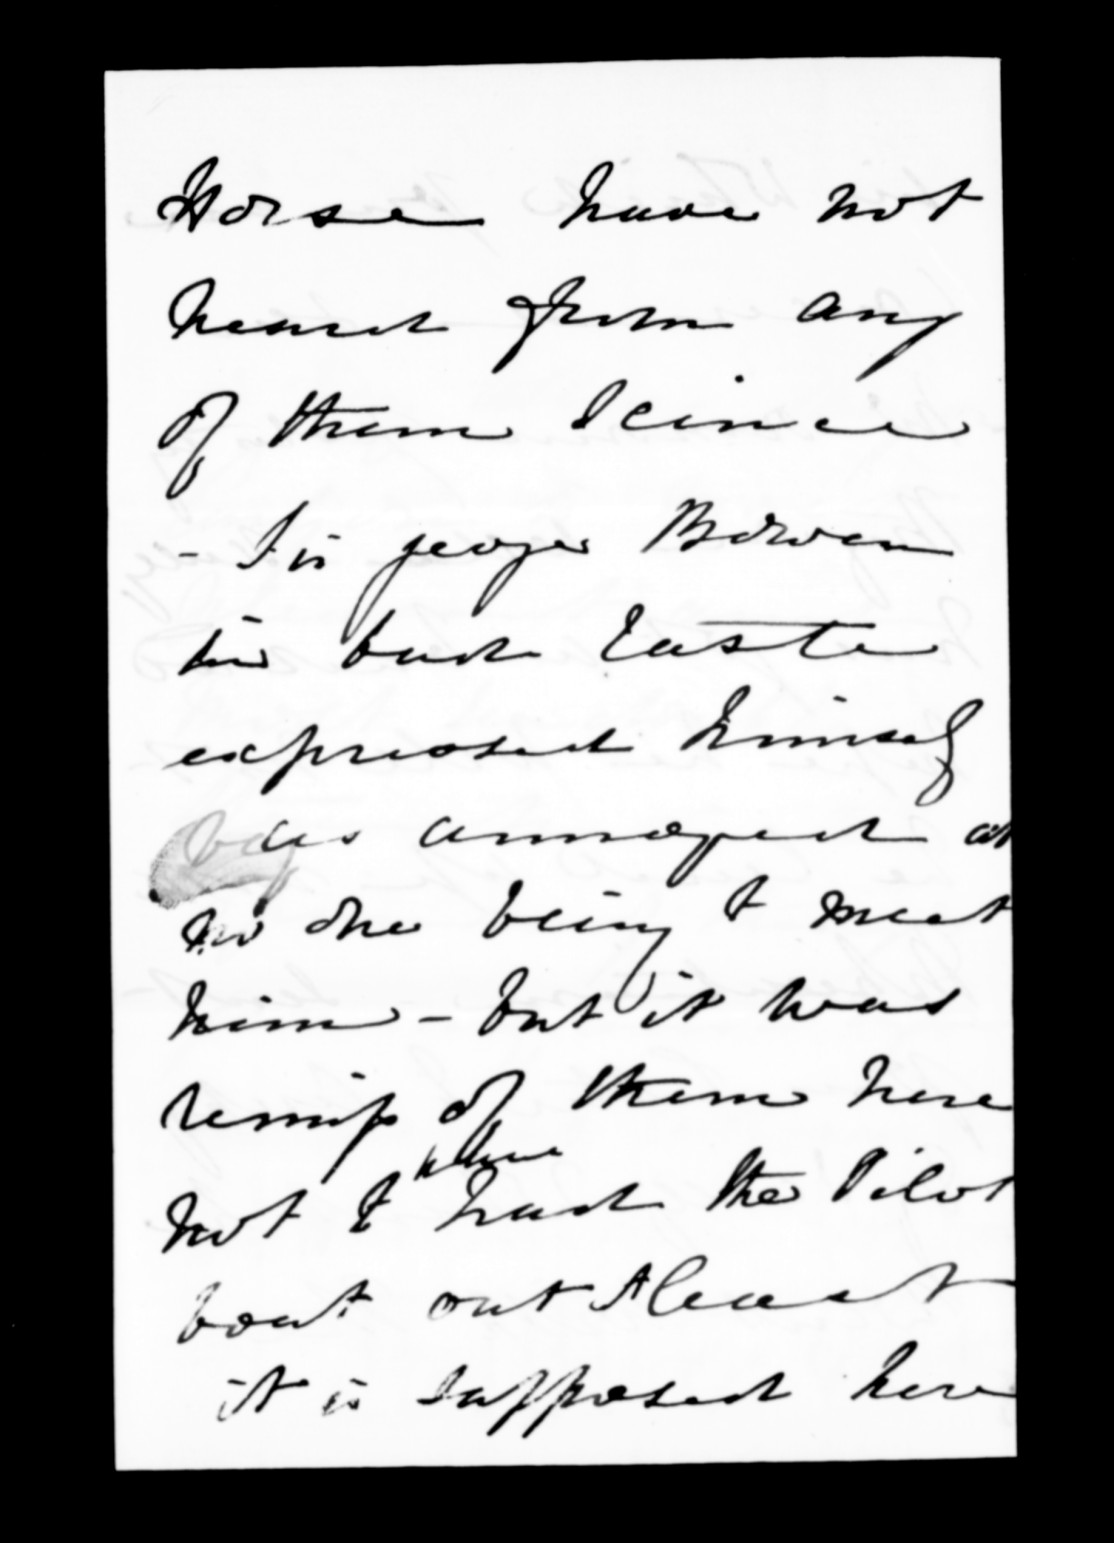 Horse have not
heard from any
of them scince
- Sir george Bowen
bad taste
expressed himself
as annoyed at
no one being to meet
him - but it was
remiss of them here
not to have had the Pilot
boat out At least
it is supposed here